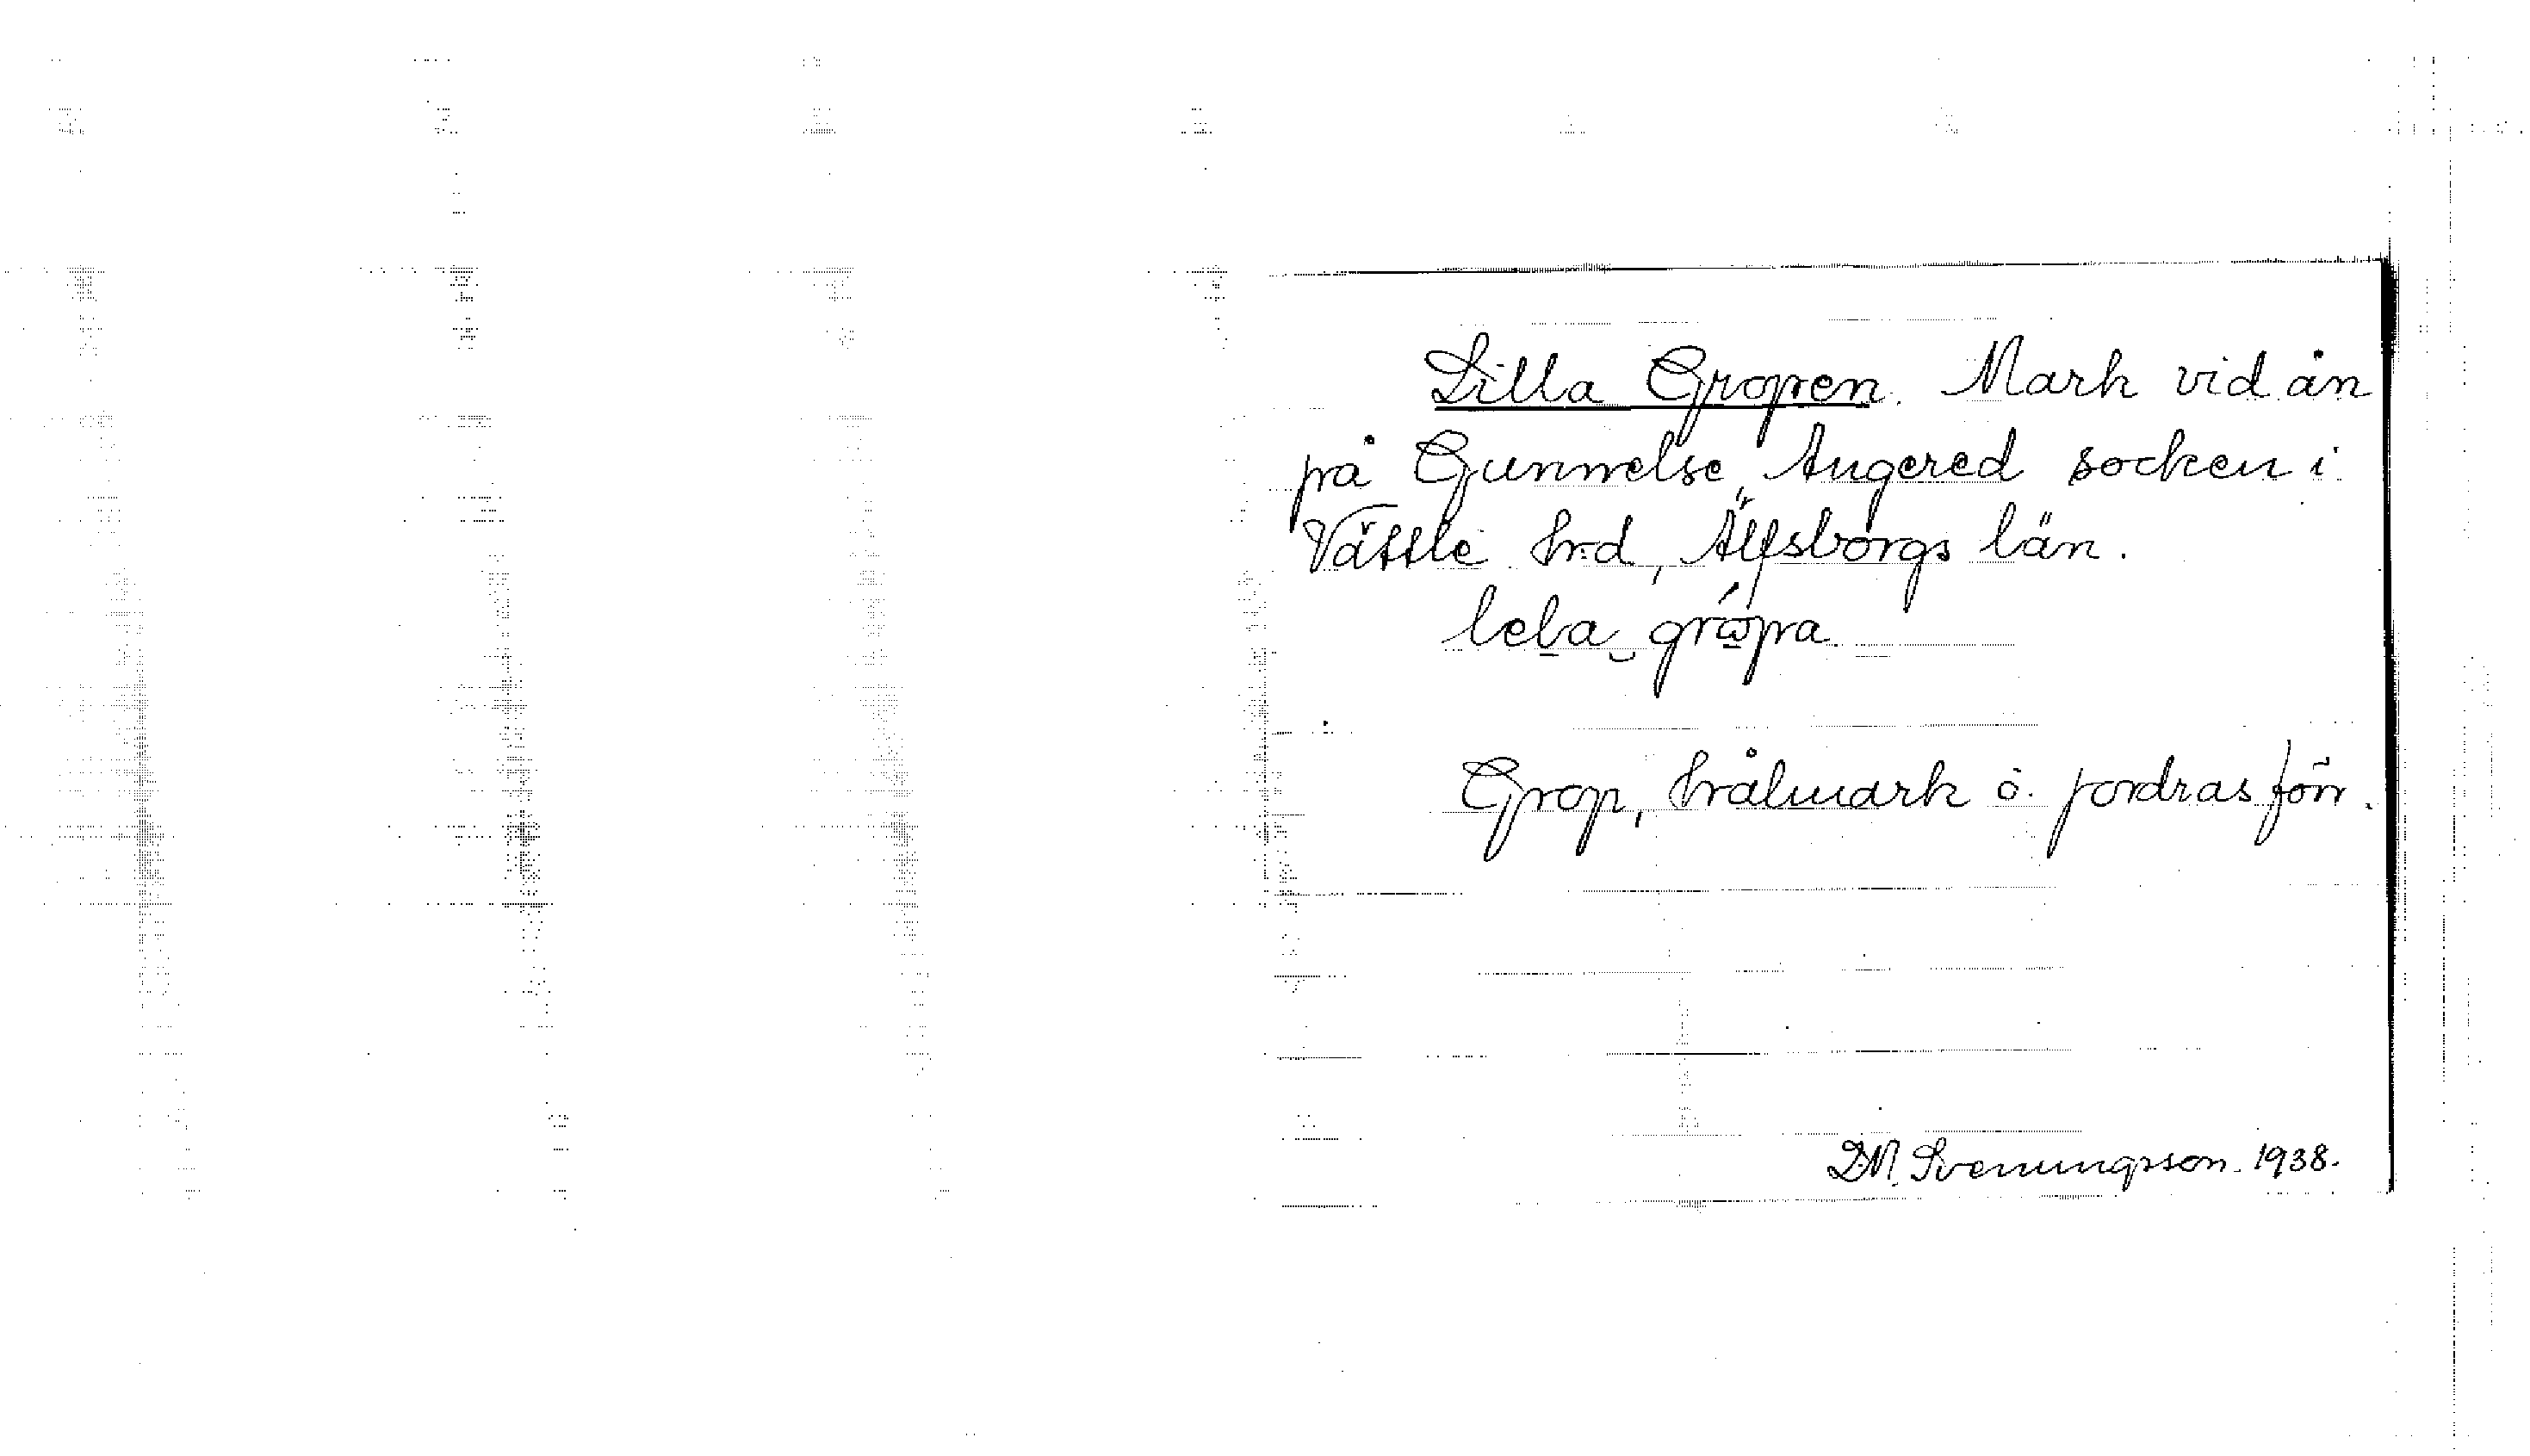 Lilla Gropen. Mark vid ån
på Gunnelse, Angered socken i
Vättle hrd, Älfsborgs län.
leḻa‿grópa.
Grop, hålmark o. fordras förr.
D.M. Svenungsson. 1938.